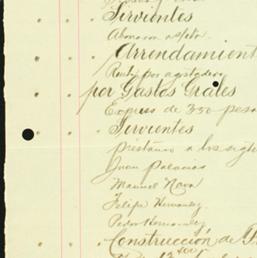 Sirvientes
Abonaron
Arrendamient
Renta por agostadero
por Gastos Grales
Expreso de 350 pesos
Sirvientes
prestamo a los sigte
Juan Palacios
Manuel Nava
Felipe Hernandez
Pedro Hernandez
Construcción de